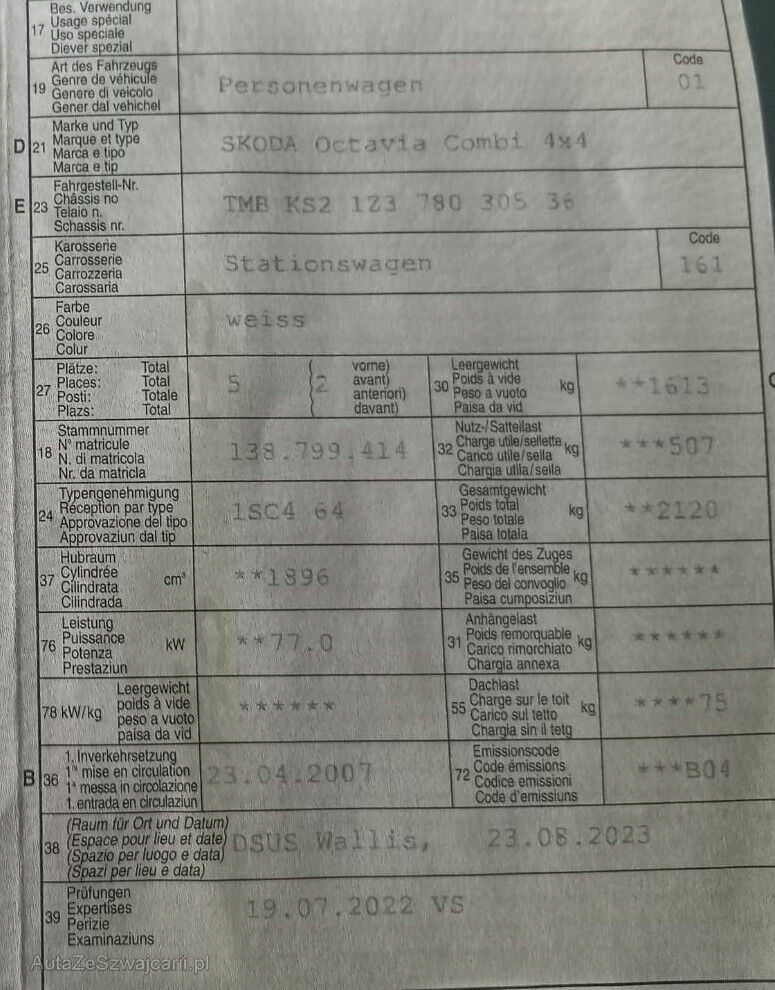 Bes. Verwendung
17 Usage spécial
Uso speciale
Diever spezial
Art des Fahrzeugs
19 Genre de véhicule
Genere di veicolo
Gener dal vehichel
Personenwagen
Code
01
Marke und Typ
D 21 Marque et type
Marca e tipo
Marca e tip
SKODA Octavia Combi 4x4
Fahrgestell-Nr.
E 23 Châssis no
Telaio n.
Schassis nr.
TMB KS2 1Z3 780 305 36
Karosserie
25 Carrosserie
Carrozzeria
Carossaria
Stationswagen
Code
161
Farbe
26 Couleur
Colore
Colur
weiss
Plätze: Total
27 Places: Total
Posti: Totale
Plazs: Total
5
( 2
vorne)
avant)
anteriori)
davant)
Leergewicht
30 Poids à vide kg
Peso a vuoto
Paisa da vid
**1613
Stammnummer
18 N° matricule
N. di matricola
Nr. da matricla
138.799.414
Nutz-/Sattellast
32 Charge utile/sellette kg
Carico utile/sella
Chargia utila/sella
***507
Typengenehmigung
24 Réception par type
Approvazione del tipo
Approvaziun dal tip
1SC4 64
Gesamtgewicht
33 Poids total kg
Peso totale
Paisa totala
**2120
Hubraum
37 Cylindrée cm³
Cilindrata
Cilindrada
**1896
Gewicht des Zuges
35 Poids de l'ensemble kg
Peso del convoglio
Paisa cumposiziun
******
Leistung
76 Puissance kW
Potenza
Prestaziun
**77.0
Anhängelast
31 Poids remorquable kg
Carico rimorchiato
Chargia annexa
******
Leergewicht
78 kW/kg poids à vide
peso a vuoto
paisa da vid
******
Dachlast
55 Charge sur le toit kg
Carico sul tetto
Chargia sin il tetg
****75
1. Inverkehrsetzung
B 36 1re mise en circulation
1a messa in circolazione
1. entrada en circulaziun
23.04.2007
Emissionscode
72 Code émissions
Codice emissioni
Code d'emissiuns
***B04
(Raum für Ort und Datum)
38 (Espace pour lieu et date)
(Spazio per luogo e data)
(Spazi per lieu e data)
DSUS Wallis, 23.08.2023
Prüfungen
39 Expertises
Perizie
Examinaziuns
19.07.2022 VS
AutaZeSzwajcarii.pl